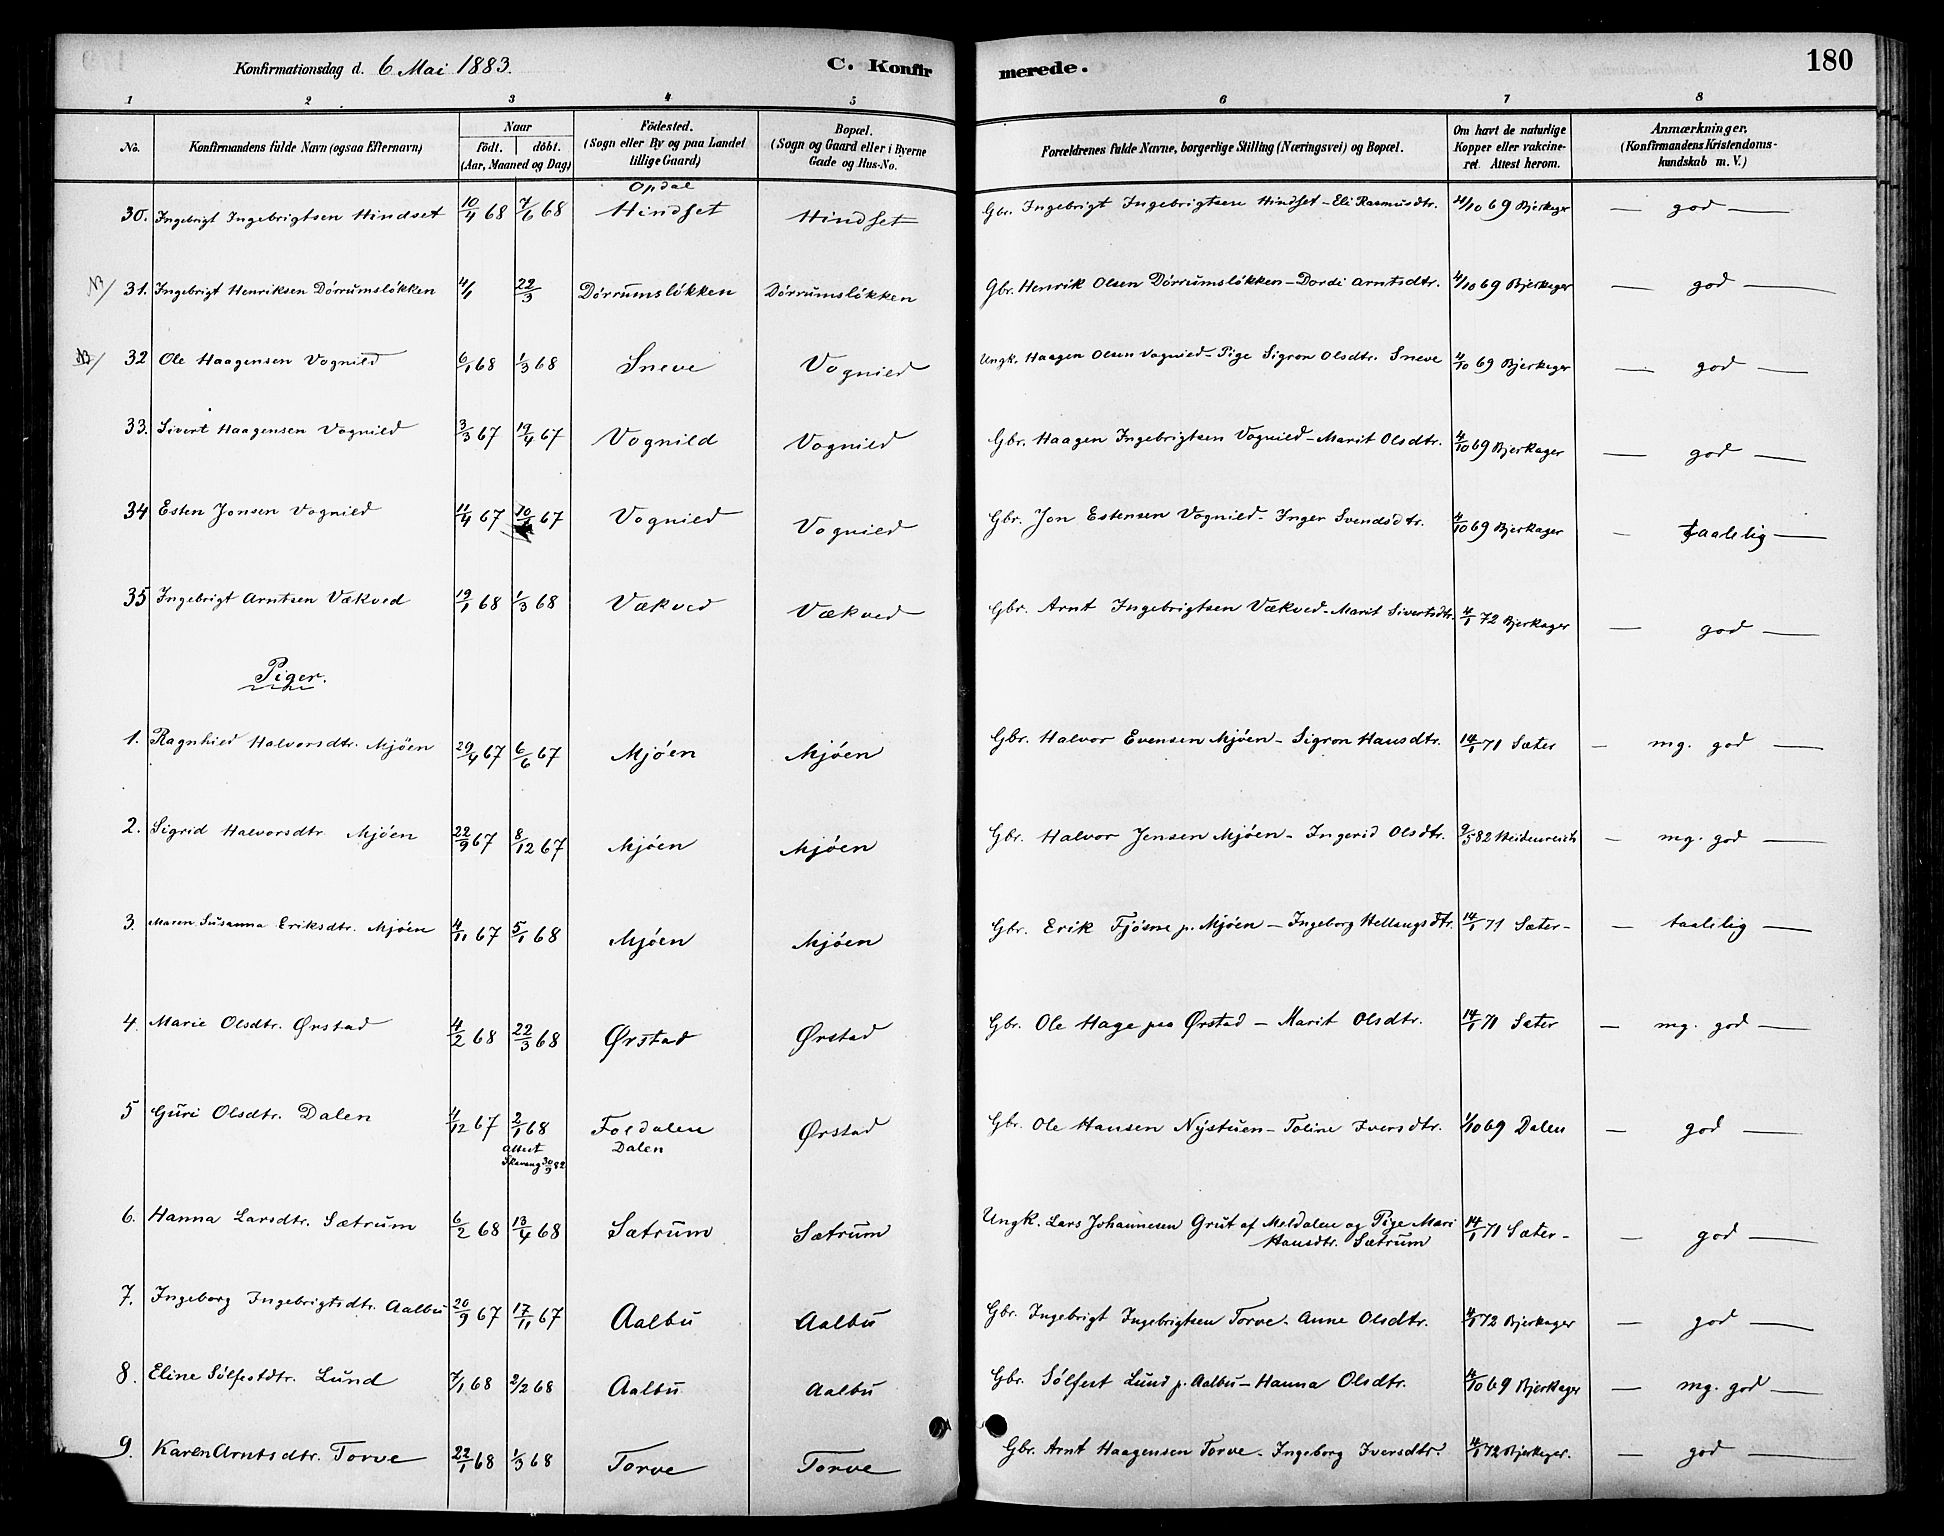 Konfirmationsdag d. 6 Mai 1883.
C. Konfirmerede.
180
1 2 3 4 5 6 7 8
No.
Konfirmandens fulde Navn (ogsaa Efternavn)
Naar
födt. döbt.
(Aar, Maaned og Dag)
Födested.
(Sogn eller By og paa Landet
tillige Gaard)
Bopæl.
(Sogn og Gaard eller i Byerne
Gade og Hus-No.
Forældrenes fulde Navne, borgerlige Stilling (Næringsvei) og Bopæl.
Om havt de naturlige
Kopper eller vakcine-
ret. Attest herom.
Anmærkninger.
(Konfirmandens Kristendoms-
kundskab m. V.)
Opdal
30. Ingebrigt Ingebrigtsen Hindset 10/4 68 7/6 68 Hindset Hindset Gbr. Ingebrigt Ingebrigtsen Hindset - Eli Rasmusdtr. 4/10 69 Bjerkager — god —
NB/ 31. Ingebrigt Henriksen Dörrumslökken 4/1 22/3 Dörrumslökken Dörrumslökken Gbr. Henrik Olsen Dörrumslökken - Dordi Arntsdtr. 4/10 69 Bjerkager — god —
NB/ 32 Ole Haagensen Vognild 6/1 68 1/3 68 Sneve Vognild Ungk. Haagen Olsen Vognild - Pige Sigron Olsdtr. Sneve 4/10 69 Bjerkager — god —
33. Sivert Haagensen Vognild 3/3 67 19/4 67 Vognild Vognild Gbr. Haagen Ingebrigtsen Vognild - Marit Olsdtr. 4/10 69 Bjerkager — god —
34 Esten Jonsen Vognild 11/4 67 10/ 67 Vognild Vognild Gbr. Jon Estensen Vognild - Inger Svendsdtr. 4/10 69 Bjerkager — taalelig —
35 Ingebrigt Arntsen Vækved 19/1 68 1/3 68 Vækved Vækved Gbr. Arnt Ingebrigtsen Vækved - Marit Sivertsdtr. 4/1 72 Bjerkager — god —
Piger.
1. Ragnhild Halvorsdtr. Mjöen 29/4 67 6/6 67 Mjöen Mjöen Gbr. Halvor Evensen Mjöen - Sigron Hansdtr. 14/1 71 Sæter — mg. god —
2. Sigrid Halvorsdtr. Mjöen 22/9 67 8/12 67 Mjöen Mjöen Gbr. Halvor Jensen Mjöen - Ingerid Olsdtr. 9/5 82 Heidenreich — mg. god —
3. Maren Susanna Eriksdtr. Mjöen 4/11 67 5/1 68 Mjöen Mjöen Gbr. Erik Fjösne p. Mjöen - Ingeborg Hellaugsdtr. 14/1 71 Sæter - — taalelig —
4. Marie Olsdtr. Ørstad 4/2 68 22/3 68 Ørstad Ørstad Gbr. Ole Hage paa Ørstad - Marit Olsdtr. 14/1 71 Sæter — mg. god —
5 Guri Olsdtr. Dalen 4/12 67 2/1 68 Foldalen Ørstad Gbr. Ole Hansen Nystuen - Toline Iversdtr. 1/10 69 Dalen — god —
attest Dalen
30/9 82
6. Hanna Larsdtr. Sætrum 6/2 68 13/4 68 Sætrum Sætrum Ungk. Lars Johannesen Grut af Meldalen og Pige Mari 14/1 71 Sæter - — god —
Hansdtr. Sætrum
7. Ingeborg Ingebrigtsdtr. Aalbu 20/9 67 17/11 67 Aalbu Aalbu Gbr. Ingebrigt Ingebrigtsen Torve - Anne Olsdtr. 4/1 72 Bjerkager — god —
8. Eline Sölfestdtr. Lund 7/1 68 2/2 68 Aalbu Aalbu Gbr. Sölfest Lund p. Aalbu - Hanna Olsdtr. 4/10 69 Bjerkager — mg. god —
9. Karen Arntsdtr. Torve 22/1 68 1/3 68 Torve Torve Gbr. Arnt Haagensen Torve - Ingeborg Iversdtr. 4/1 72 Bjerkager. — god —